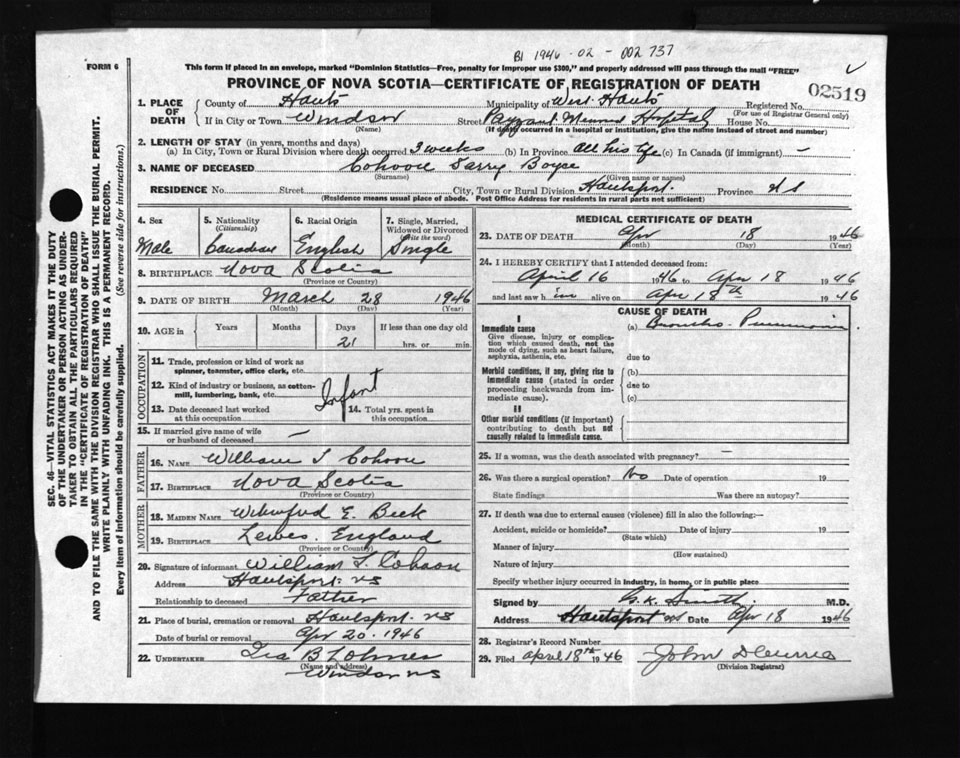 B1 1946-02-002737
FORM 6
This form if placed in an envelope, marked "Dominion Statistics—Free, penalty for improper use $300," and properly addressed will pass through the mail "FREE"
PROVINCE OF NOVA SCOTIA—CERTIFICATE OF REGISTRATION OF DEATH
02519
SEC. 46—VITAL STATISTICS ACT MAKES IT THE DUTY
OF THE UNDERTAKER OR PERSON ACTING AS UNDER-
TAKER TO OBTAIN ALL THE PARTICULARS REQUIRED
IN THE "CERTIFICATE OF REGISTRATION OF DEATH"
AND TO FILE THE SAME WITH THE DIVISION REGISTRAR WHO SHALL ISSUE THE BURIAL PERMIT.
WRITE PLAINLY WITH UNFADING INK. THIS IS A PERMANENT RECORD.
Every item of information should be carefully supplied. (See reverse side for instructions.)
1. PLACE OF DEATH
County of Hants Municipality of West Hants Registered No.
(For use of Registrar General only)
If in City or Town Windsor Street Payzant Memorial Hospital House No.
(Name) (If death occurred in a hospital or institution, give the name instead of street and number)
2. LENGTH OF STAY (in years, months and days)
(a) In City, Town or Rural Division where death occurred 3 weeks (b) In Province All his life (c) In Canada (if immigrant) —
3. NAME OF DECEASED Cohoon Larry Boyce
(Surname) (Given name or names)
RESIDENCE No. Street City, Town or Rural Division Hantsport. Province NS
(Residence means usual place of abode. Post Office Address for residents in rural parts not sufficient)
4. Sex Male
5. Nationality (Citizenship) Canadian
6. Racial Origin English
7. Single, Married, Widowed or Divorced (Write the word) Single
8. BIRTHPLACE Nova Scotia
(Province or Country)
9. DATE OF BIRTH March 28 1946
(Month) (Day) (Year)
10. AGE in Years Months Days If less than one day old
21 hrs. or min.
OCCUPATION
11. Trade, profession or kind of work as
spinner, teamster, office clerk, etc.
12. Kind of industry or business, as cotten-
mill, lumbering, bank, etc. Infant
13. Date deceased last worked
at this occupation
14. Total yrs. spent in
this occupation
15. If married give name of wife
or husband of deceased —
FATHER
16. NAME William L Cohoon
17. BIRTHPLACE Nova Scotia
(Province or Country)
MOTHER
18. MAIDEN NAME E. Beck
19. BIRTHPLACE Lewes England
(Province or Country)
20. Signature of informant William L. Cohoon
Address Hantsport. NS
Relationship to deceased Father
21. Place of burial, cremation or removal Hantsport. NS
Date of burial or removal Apr 20. 1946
22. UNDERTAKER Ira B Lohnes
(Name and address)
Windsor NS
MEDICAL CERTIFICATE OF DEATH
23. DATE OF DEATH Apr 18 1946
(Month) (Day) (Year)
24. I HEREBY CERTIFY that I attended deceased from:
April 16 1946 to Apr 18 1946
and last saw him alive on Apr 18th 1946
CAUSE OF DEATH
I
Immediate cause (a) Broncho-Pneumonia
Give disease, injury or complica-
tion which caused death, not the
mode of dying, such as heart failure,
asphyxia, asthenia, etc. due to
Morbid conditions, if any, giving rise to
immediate cause (stated in order
proceeding backwards from im-
mediate cause).
(b)
due to
(c)
II
Other morbid conditions (if important)
contributing to death but not
causally related to immediate cause.
25. If a woman, was the death associated with pregnancy? —
26. Was there a surgical operation? No Date of operation 19
State findings Was there an autopsy?
27. If death was due to external causes (violence) fill in also the following:—
Accident, suicide or homicide? Date of injury 19
(State which)
Manner of injury
(How sustained)
Nature of injury
Specify whether injury occurred in industry, in home, or in public place
Signed by G.K. Smith. M.D.
Address Hantsport NS Date Apr 18 1946
28. Registrar's Record Number
29. Filed April 18th 1946 John
(Division Registrar)